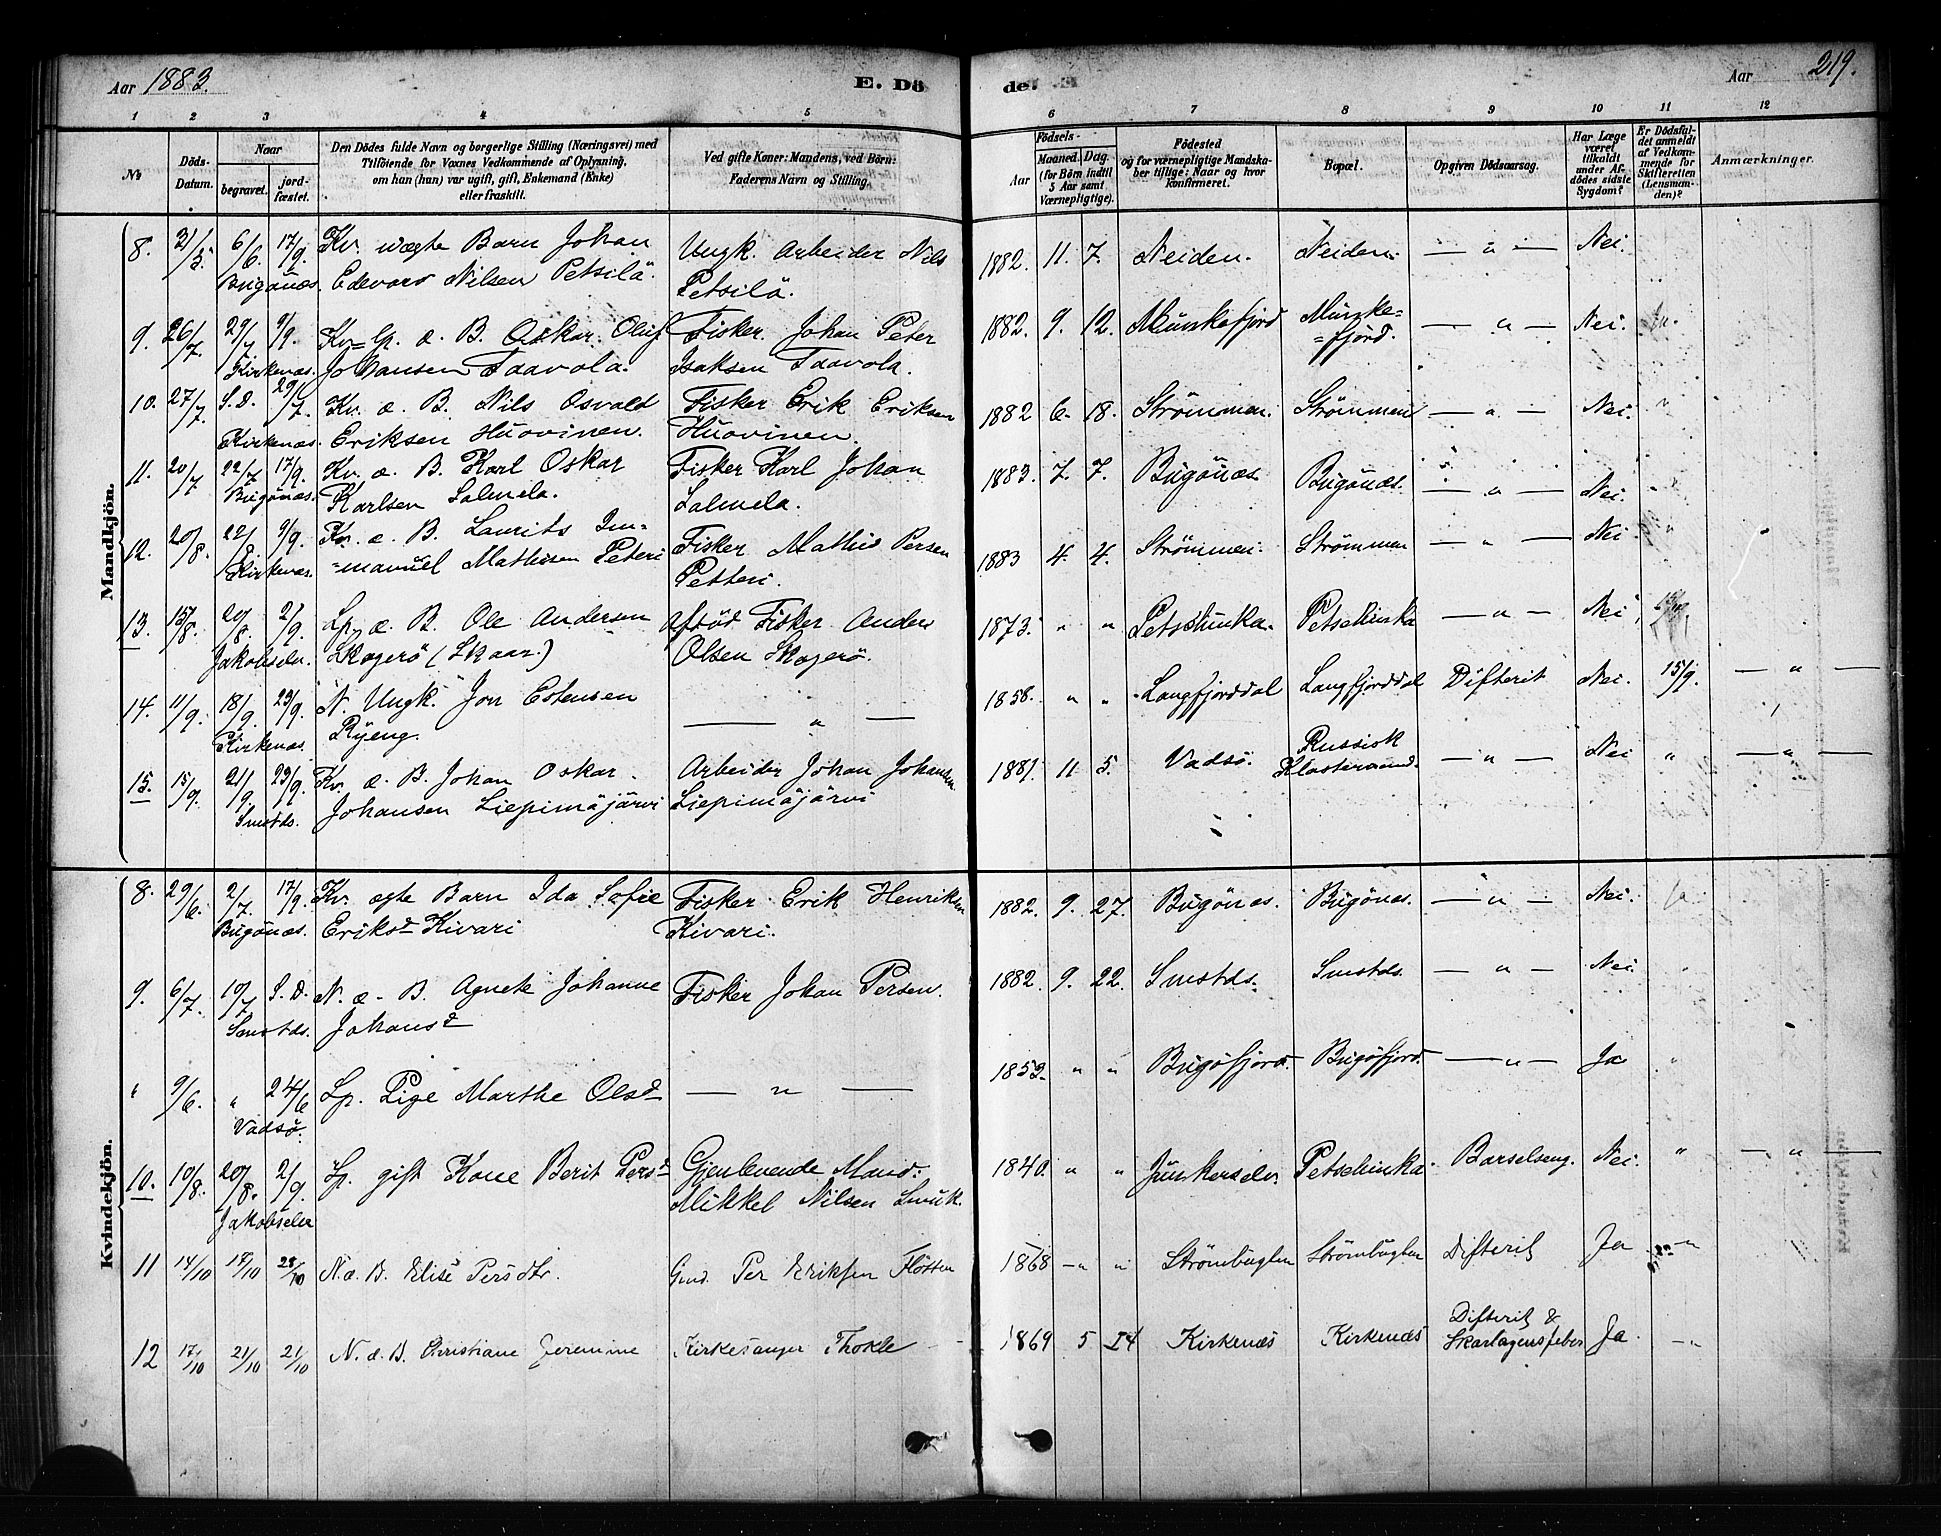 Aar 1883.
E. Dö
de.
Aar 219.
1 2 3 4 5 6 7 8 9 10 11 12
No
Döds-Datum.
Naar
begravet.
jord-fæstet.
Den Dödes fulde Navn og borgerlige Stilling (Næringsvei) med
Tilföiende for Voxnes Vedkommende af Oplysning,
om han (hun) var ugift, gift, Enkemand (Enke)
eller fraskilt.
Ved gifte Koner: Mandens, ved Börn:
Faderens Navn og Stilling.
Födsels-
Aar
Maaned. Dag.
(for Börn indtil
5 Aar samt
Værnepligtige).
Födested
og for værnepligtige Mandska-
ber tillige: Naar og hvor
konfirmeret.
Bopæl.
Opgiven Dödsaarsag.
Har Læge
været
tilkaldt
under Af-
dödes sidste
Sygdom?
Er Dödsfal-
det anmeldt
af Vedkom-
mende for
Skifteretten
(Lensman-
den)?
Anmærkninger.
Mandkjön.
8. 31/5. 6/6 17/9. Kv. ægte Barn Johan Ungk. Arbeider Nils 1882. 11. 7. Neiden. Neiden. — " — Nei.
Bugönæs. Edevard Nilsen Petsilä. Petsilä.
9. 26/7. 29/7. 9/9. Kv=Lp. æ. B. Oskar Oluf Fisker Johan Peter 1882. 9. 12. Munkefjord Munke=
=fjord. — " — Nei.
Kirkenæs. Johansen Taavola. Isaksen Taavola.
10. 27/7. S.D. 29/7. Kv. æ. B. Nils Osvald Fisker Erik Eriksen 1882 6. 18. Strömmen. Strömmen — " — Nei. "
Kirkenæs. Eriksen Huovinen. Huovinen.
11. 20/7 22/7 17/9. Kv. æ. B. Karl Oskar Fisker Karl Johan 1883. 7. 7. Bugönæs. Bugönæs. — " — Nei.
Bugönæs. Karlsen Salmela. Salmela.
12. 20/8. 22/8. 9/9. Kv. æ. B. Laurits Im= Fisker Mathis Persen 1883 4. 4. Strömmen. Strömmen — " — Nei "
Kirkenæs. =manuel Mathisen Peteri Petteri.
13. 15/8. 20/8. 2/9. Lp. æ. B. Ole Andersen Afdöd Fisker Anders 1873. " " Petschinka. Petschinka — " — Nei
Jakobselv. Skogerö (Skaar.) Olsen Skogerö.
14. 11/9. 18/9. 23/9. N. Ungk. Jon Estensen — " — 1858. " " Langfjorddal Langfjorddal Difterit Nei. 15/9. — " —
Kirkenæs. Ryeng.
15. 15/9. 21/9. 23/9. Kv. æ. B. Johan Oskar Arbeider Johan Johansen 1881. 11 5. Vadsö. Russisk
Klostersund. — " — Nei " — " —
Smstds. Johansen Liepimäjärvi Liepimäjärvi
Kvindekjön.
8. 29/6. 2/7. 17/9. Kv. ægte Barn Ida Sofie Fisker Erik Henriksen 1882. 9. 27. Bugönæs. Bugönæs. — " — Nei.
Bugönæs. Eriksd Kivari Kivari.
9. 6/7. 10/7 S.D. N. æ. B. Agnete Johanne Fisker Johan Persen. 1882. 9. 22. Smstds. Smstds. — " — Nei. "
Smstds. Johansd
" 9/6. " 24/6 Lp. Pige Marthe Olsd — " — 1853. " " Bugöfjord. Bugöfjord. — " — Ja "
Vadsö.
10. 10/8. 20/8. 2/9. Lp. gift Kone Berit Persd Gjenlevende Mand. 1840. " " Junkerselv Petschinka. Barselseng. Nei. " — " —
Jakobselv Mikkel Nilsen Smuk.
11 14/10 17/10 28/10 N. æ. B. Elise Persdtr. Gmd. Per Eriksen Flötten 1868 " " Strömbugten Strömbugten Difterit Ja
12 17/10 21/10 21/10 N. æ. B. Christiane Jeremine Kirkesanger Thokle 1869 5 14 Kirkenæs Kirkenæs Difterit &
Skarlagensfeber Ja "